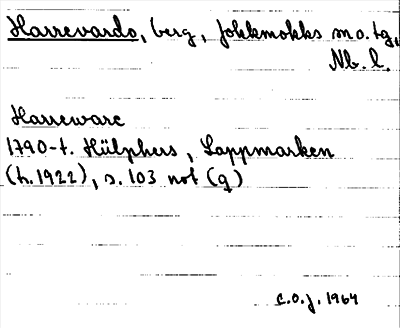 Harrevardo, berg, Jokkmokks sn o. tg,
Nb. l.
Harreware
1790-t. Hülphers, Lappmarken
(tr. 1922), s. 103 not (q)
C.O.J. 1964